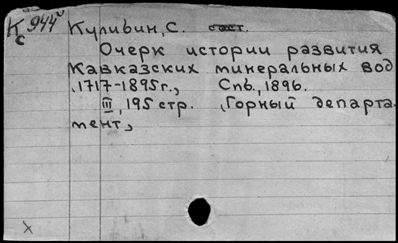 К 944
с
Кулибин, С. сост.
Очерк истории развития
Кавказских минеральных вод
1717-1895г., Спб., 1896.
III, 195 стр. (Горный департа-
мент),
х